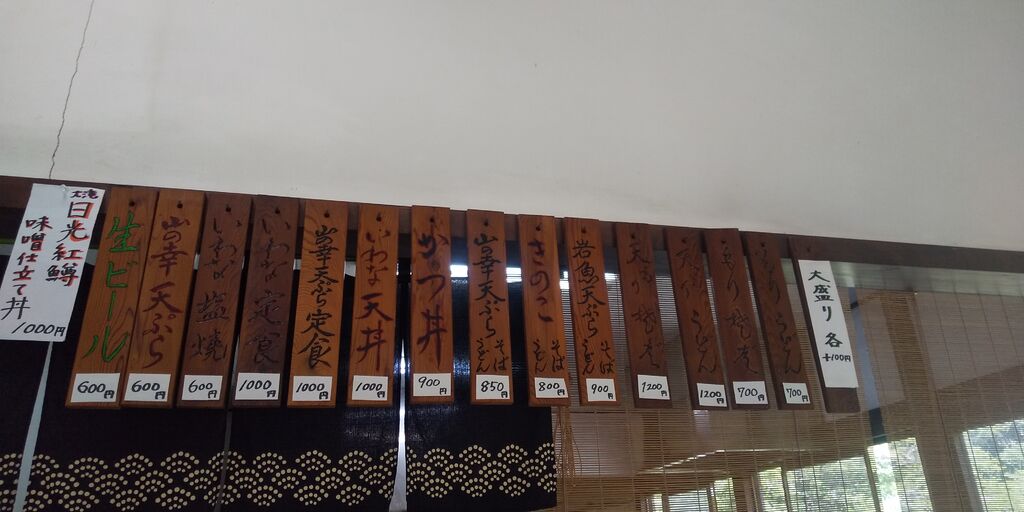 焼
日光紅鱒
味噌仕立て丼
1000円
生ビール
600円
山の幸 天ぷら
600円
いわな 塩焼
600円
いわな 定食
1000円
山の幸 天ぷら 定食
1000円
いわな 天丼
1000円
かつ丼
900円
山の幸 天ぷら そば うどん
850円
きのこ そば うどん
800円
岩魚 天ぷら そば うどん
900円
1200円
うどん
1200円
700円
うどん
700円
大盛り 各
+100円